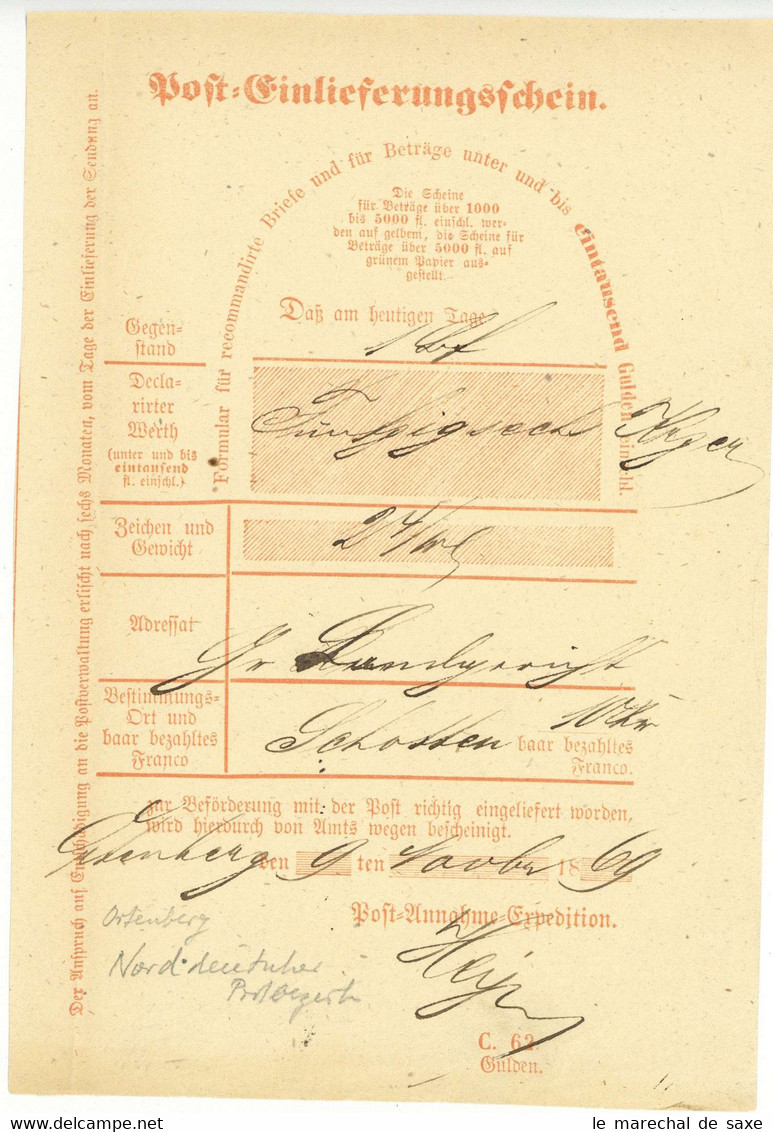 Post-Einlieferungsschein.
Formular für recommandirte Briefe und für Beträge unter und bis eintausend Gulden einschl.
Die Scheine
für Beträge über 1000
bis 5000 fl. einschl. wer-
den auf gelbem, die Scheine für
Beträge über 5000 fl. auf
grünem Papier aus-
gestellt.
Daß am heutigen Tage
Gegen-
stand
1 Bf
Decla-
rirter
Werth
(unter und bis
eintausend
fl. einschl.)
Fünfzigsechs
Zeichen und
Gewicht
Adressat
Gr Landgericht
Bestimmungs-
Ort und
baar bezahltes
Franco
Schotten
10 Kr
baar bezahltes
Franco.
zur Beförderung mit der Post richtig eingeliefert worden,
wird hierdurch von Amts wegen bescheinigt.
Ortenberg den 9 ten Novbr 1869
Post-Annahme-Expedition.
Ortenberg
Norddeutscher
Postbezirk
C. 62.
Gulden.
Der Anspruch auf Entschädigung an die Postverwaltung erlischt nach sechs Monaten, vom Tage der Einlieferung der Sendung an.
le marechal de saxe